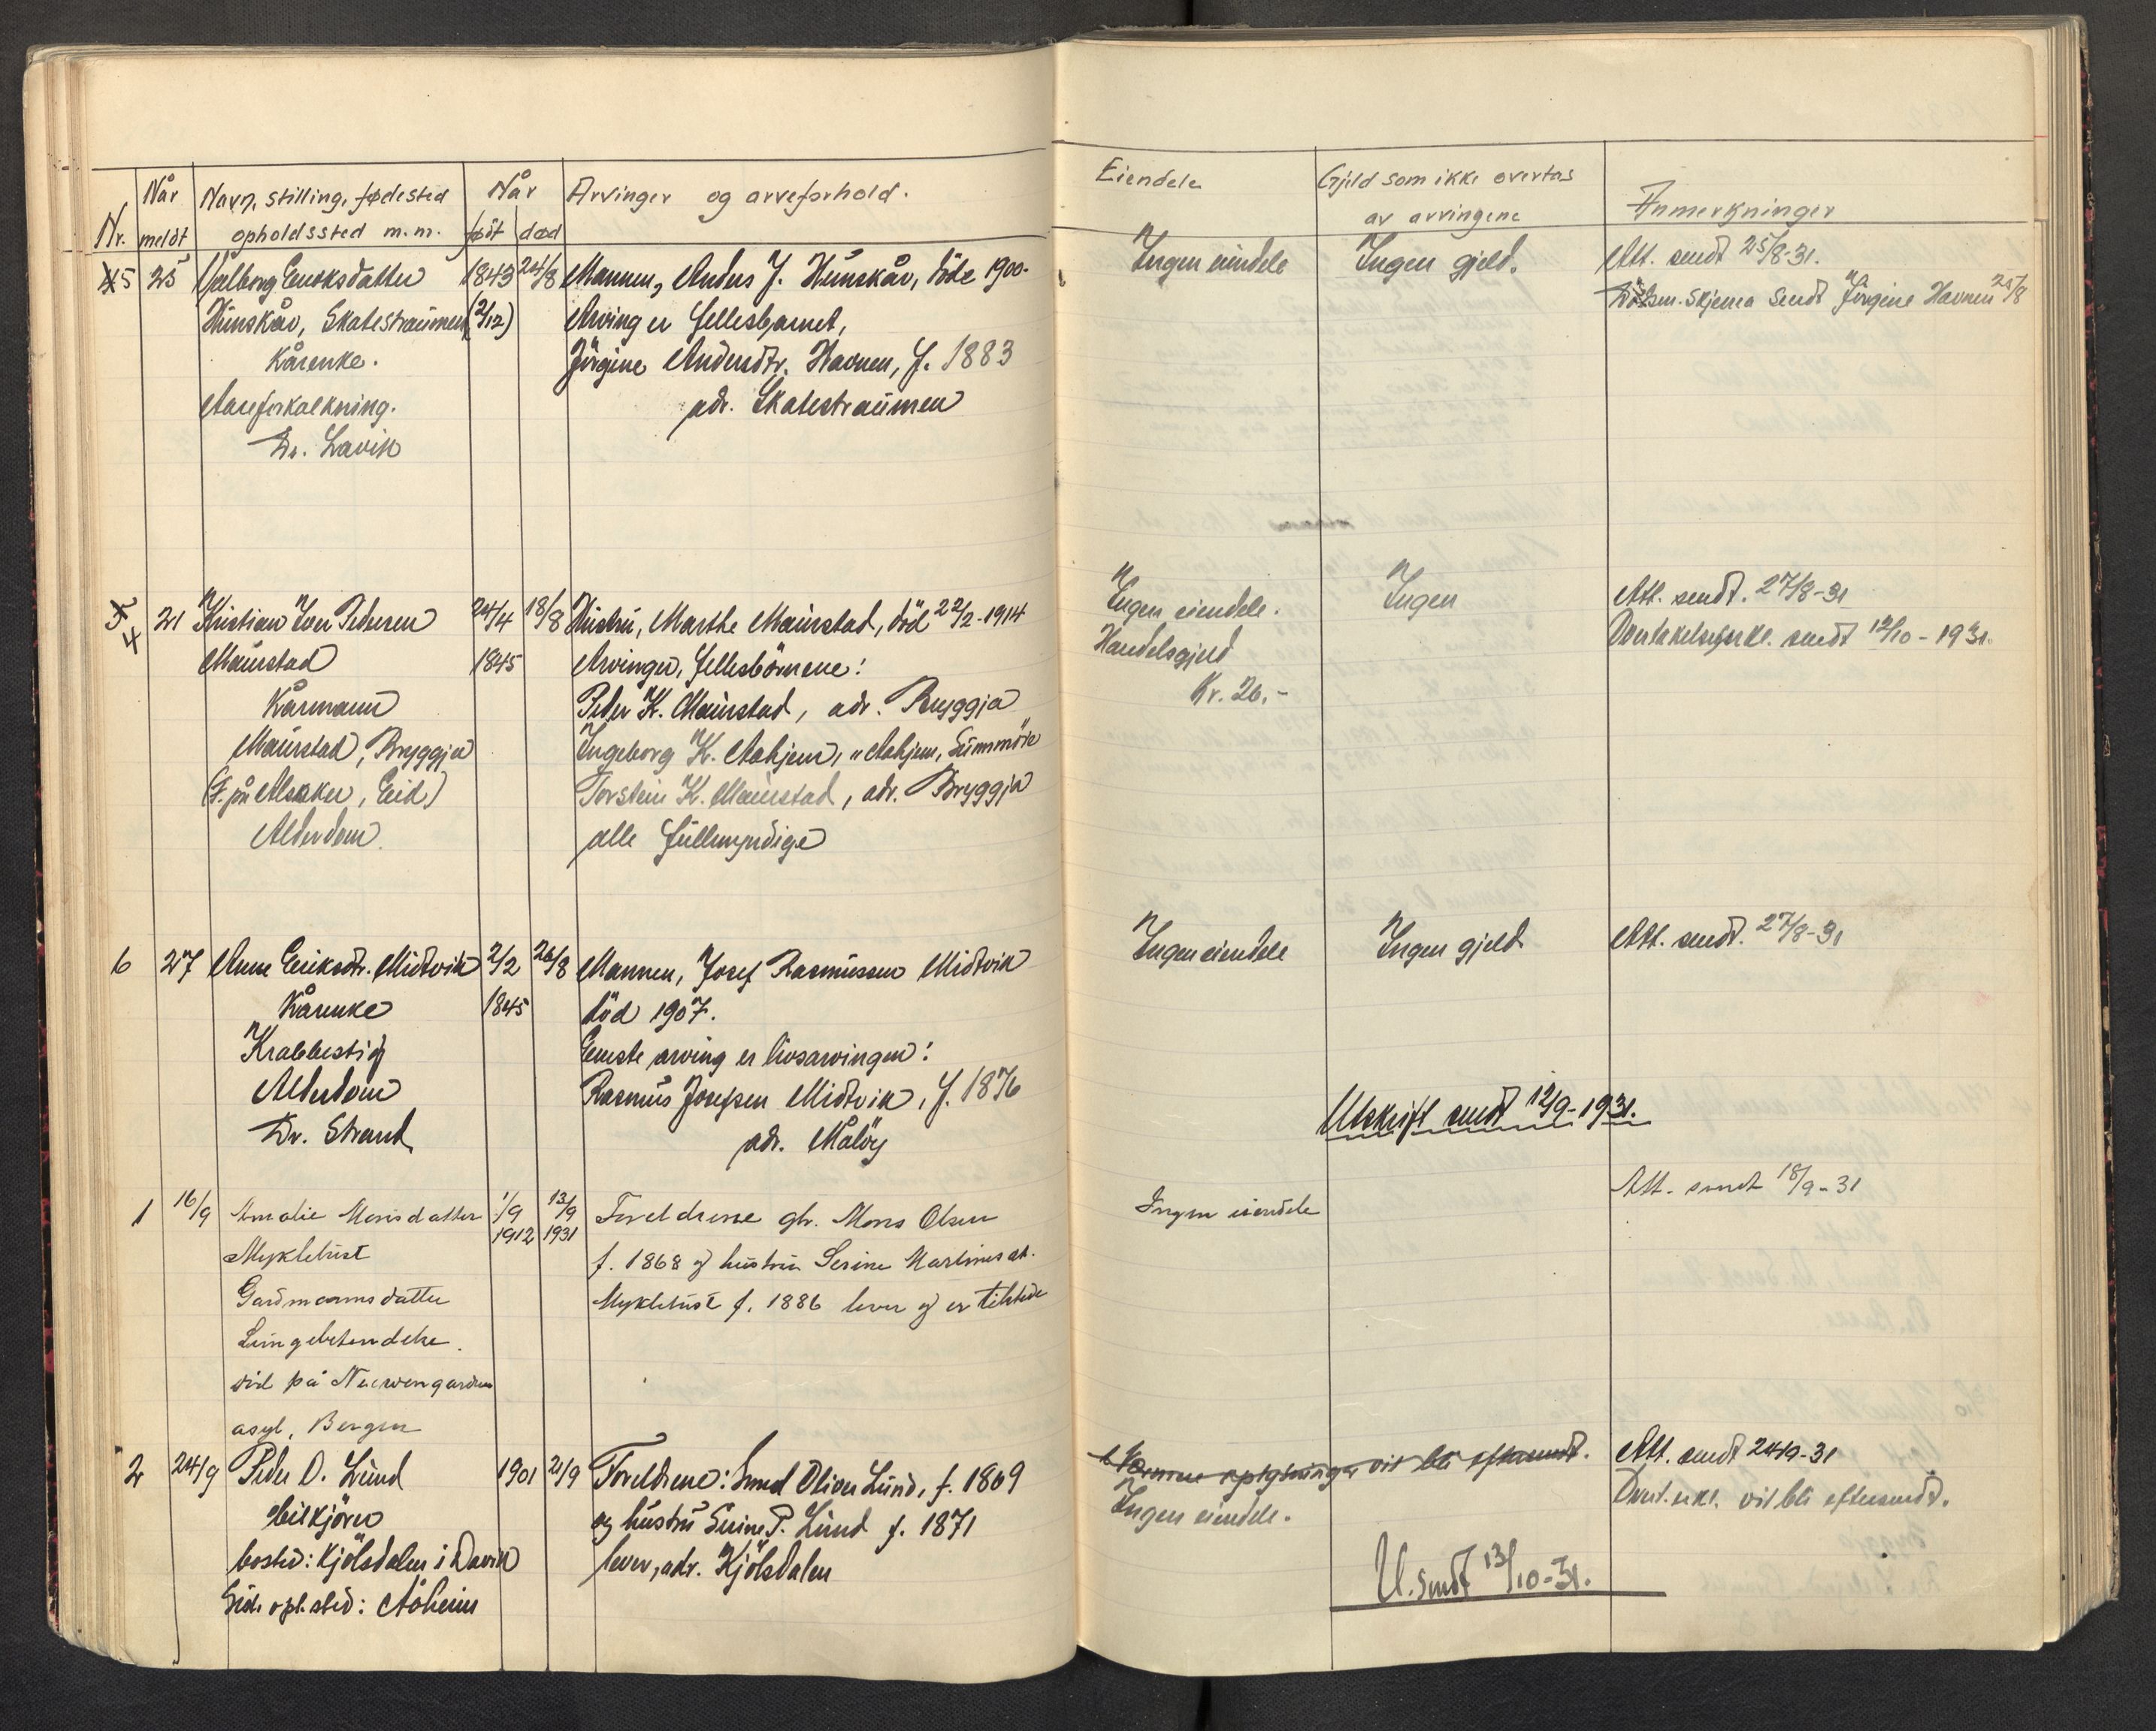 Nr.
Når
meldt
Navn, stilling, fødested
opholdssted m.m.
Når
født død
Arvinger og arveforhold.
5 25 Valborg Enoksdatter 1843 24/8 Mannen, Anders J. Hunskår, döde 1900.
Hunskår, Skatestraumen (2/12) Arving er fellesbarnet,
Kårenke. Jörgine Andersdtr. Havnen, f. 1883
Aareforkalkning. adr. Skatestraumen
Dr. Lavik
4 21 Kristian Iver Pedersen 24/4 18/8 Hustru, Marthe Maurstad, död 22/2-1914
Maurstad 1845 Arvinger, fellesbörnene:
Kårmann Peder K. Maurstad, adr. Bryggja
Maurstad, Bryggja Ingeborg K. Aahjem, " Aahjem, Sunnmöre
(F. på Alsaker, Eid) Torstein K. Maurstad, adr. Bryggja
Alderdom. alle fullmyndige
6 27 Anne Eriksdtr. Midtvik 2/2 26/8 Mannen, Josef Rasmussen Midtvik
Kårenke 1845 död 1907.
Krabbestig Eneste arving er livsarvingen:
Alderdom Rasmus Josefsen Midtvik, f. 1876
Dr. Strand adr. Målöy
1 16/9 Amalie Monsdatter 1/9 13/9 Foreldrene gbr. Mons Olsen
1912 1931
Myklebust f. 1868 og hustru Serine Martinusdt.
Gardmannsdatter Myklebust f. 1886 lever og er tilstede
Lungebetendelse.
död på Neevengardens
asyl, Bergen
2 24/9 Peder O. Lund 1901 21/9 Foreldrene: Smed Oliver Lund, f. 1869
bilkjörer og hustru Serine P. Lund f. 1871
bosted: Kjölsdalen i Davik lever, adr. Kjölsdalen
Sid. opl.sted: Åheim
Eiendele
Gjeld som ikke overtas
av arvingene
Anmerkninger
Ingen eiendele Ingen gjeld. Att. sendt 25/8-31.
skjema sendt Jörgine Havnen 25/8
Ingen eiendele. Ingen Att. sendt. 27/8-31
Handelsgjeld Overtakelseserkl. sendt 12/10-1931.
Kr. 26.-
Ingen eiendele Ingen gjeld Att. sendt. 27/8-31
Utskrift sendt 12/9-1931.
Ingen eiendele Att. sendt 18/9-31
oplysninger vil bli eftersendt. Att. sendt 24/9-31
Ingen eiendele. Overt.erkl. vil bli eftersendt.
U. sendt 13/10-31.